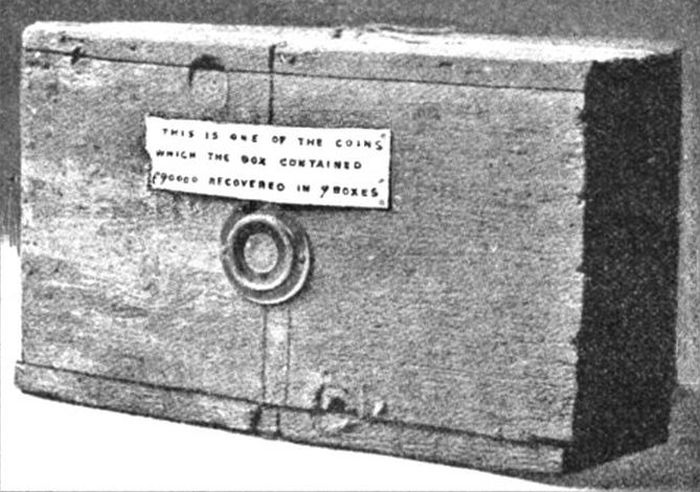 THIS IS ONE OF THE COINS
WHICH THE BOX CONTAINED
£90000 RECOVERED IN 9 BOXES